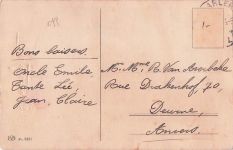 Bons baisers.
Oncle Emile,
Tante Léa,
Jean, Claire
M. Mme R. Van
Rue Drakenhof, 70,
Deurne,
Anvers.